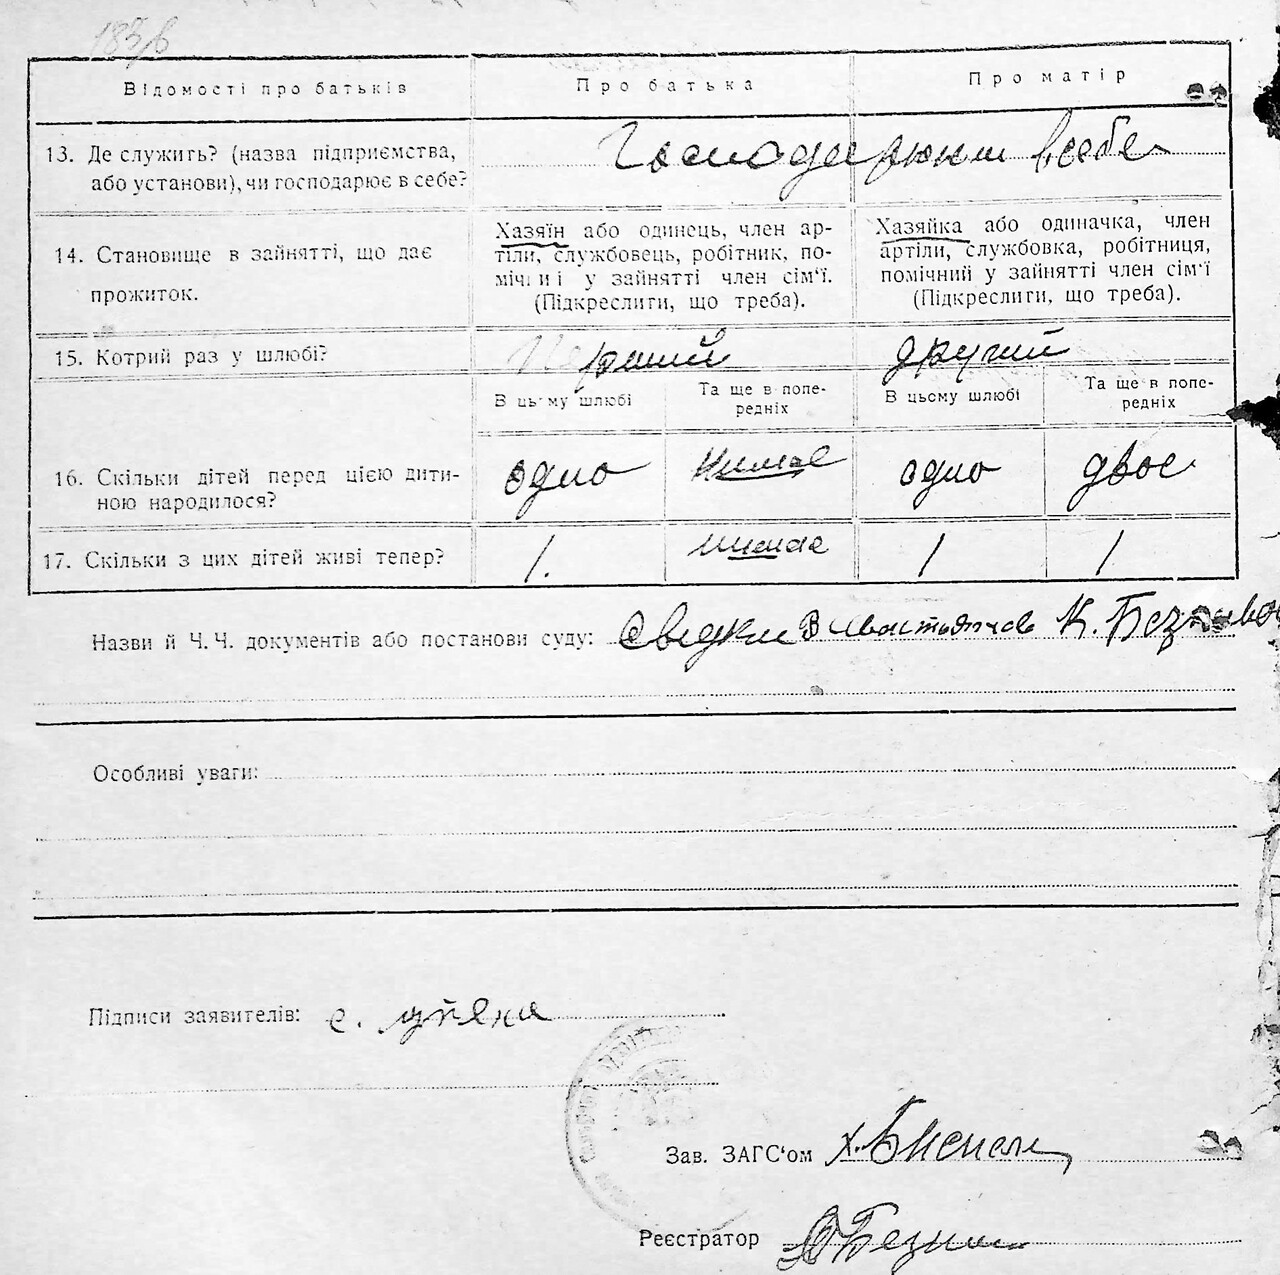 183/в
Відомості про батьків Про батька Про матір
13. Де служить? (назва підприємства, або установи), чи господарює в себе?
Господарюють в себе
14. Становище в зайнятті, що дає прожиток.
Хазяїн або одинець, член ар-
тіли, службовець, робітник, по-
мічний у зайнятті член сім'ї.
(Підкреслити, що треба).
Хазяйка або одиначка, член
артіли, службовка, робітниця,
помічний у зайнятті член сім'ї
(Підкреслити, що треба).
15. Котрий раз у шлюбі? Перший другий
В цьому шлюбі Та ще в попе-
редніх В цьому шлюбі Та ще в попе-
редніх
16. Скільки дітей перед цією дити-
ною народилося? одно немає одно двоє
17. Скільки з цих дітей живі тепер? 1. немає 1 1
Назви й Ч. Ч. документів або постанови суду: К.
Особливі уваги:
Підписи заявителів:
Зав. ЗАГС'ом
Реєстратор